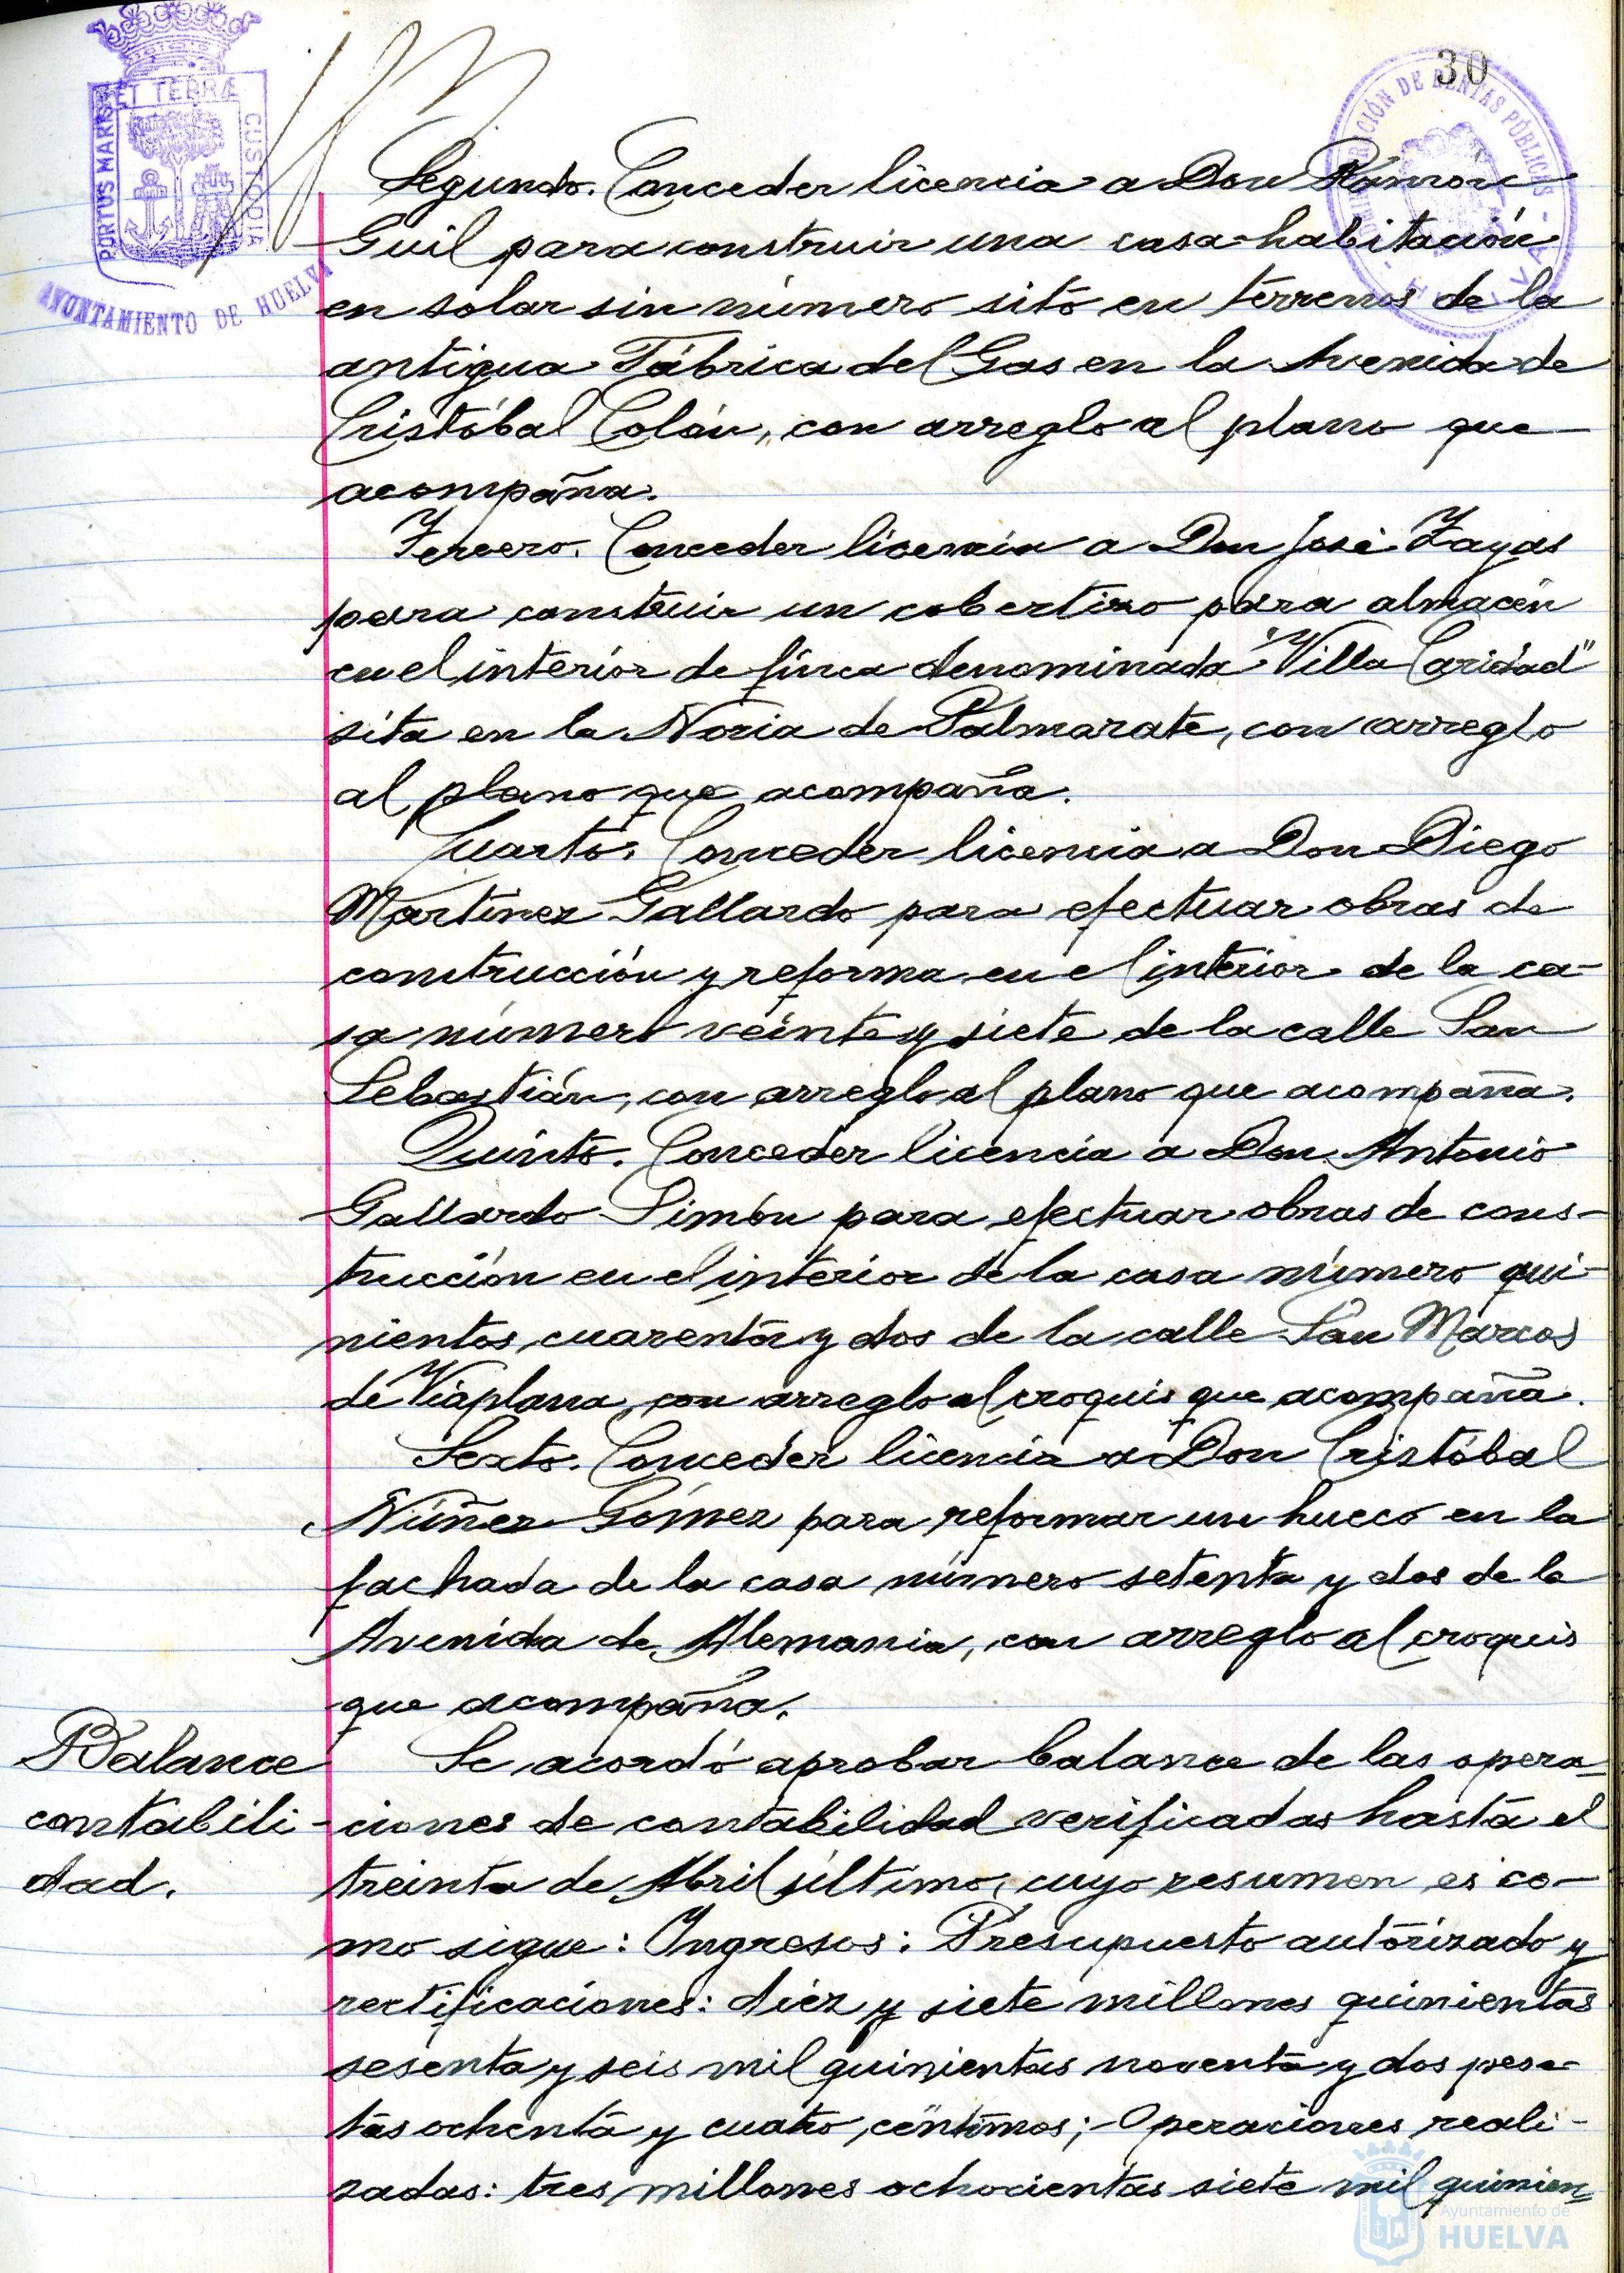 30
PORTUS MARIS ET TERRÆ CUSTODIA
AYUNTAMIENTO DE HUELVA
Segundo. Conceder licencia a Don Ramon
Guil para construir una casa-habitación
en solar sin número sito en terrenos de la
antigua Fábrica del Gas en la Avenida de
Cristóbal Colón, con arreglo al plano que
acompaña.
Tercero. Conceder licencia a Don José Zayas
para construir un cobertizo para almacén
en el interior de finca denominada "Villa Caridad"
sita en la Noria de Palmarate, con arreglo
al plano que acompaña.
Cuarto. Conceder licencia a Don Diego
Martinez Gallardo para efectuar obras de
construcción y reforma en el interior de la ca-
sa número veinte y siete de la calle San
Sebastián, con arreglo al plano que acompaña.
Quinto. Conceder licencia a Don Antonio
Gallardo Simón para efectuar obras de cons-
trucción en el interior de la casa número qui-
nientos cuarenta y dos de la calle San Marcos
de Viaplana, con arreglo al croquis que acompaña.
Sexto. Conceder licencia a Don Cristóbal
Núñez Gómez para reformar un hueco en la
fachada de la casa número setenta y dos de la
Avenida de Alemania, con arreglo al croquis
que acompaña.
Balance
contabili-
dad.
Se acordó aprobar balance de las opera-
ciones de contabilidad verificadas hasta el
treinta de Abril último, cuyo resumen es co-
mo sigue: Ingresos: Presupuesto autorizado y
rectificaciones: diez y siete millones quinientas
sesenta y seis mil quinientas noventa y dos pese-
tas ochenta y cuatro céntimos; Operaciones reali-
zadas: tres millones ochocientas siete mil quinien-
Ayuntamiento de
HUELVA